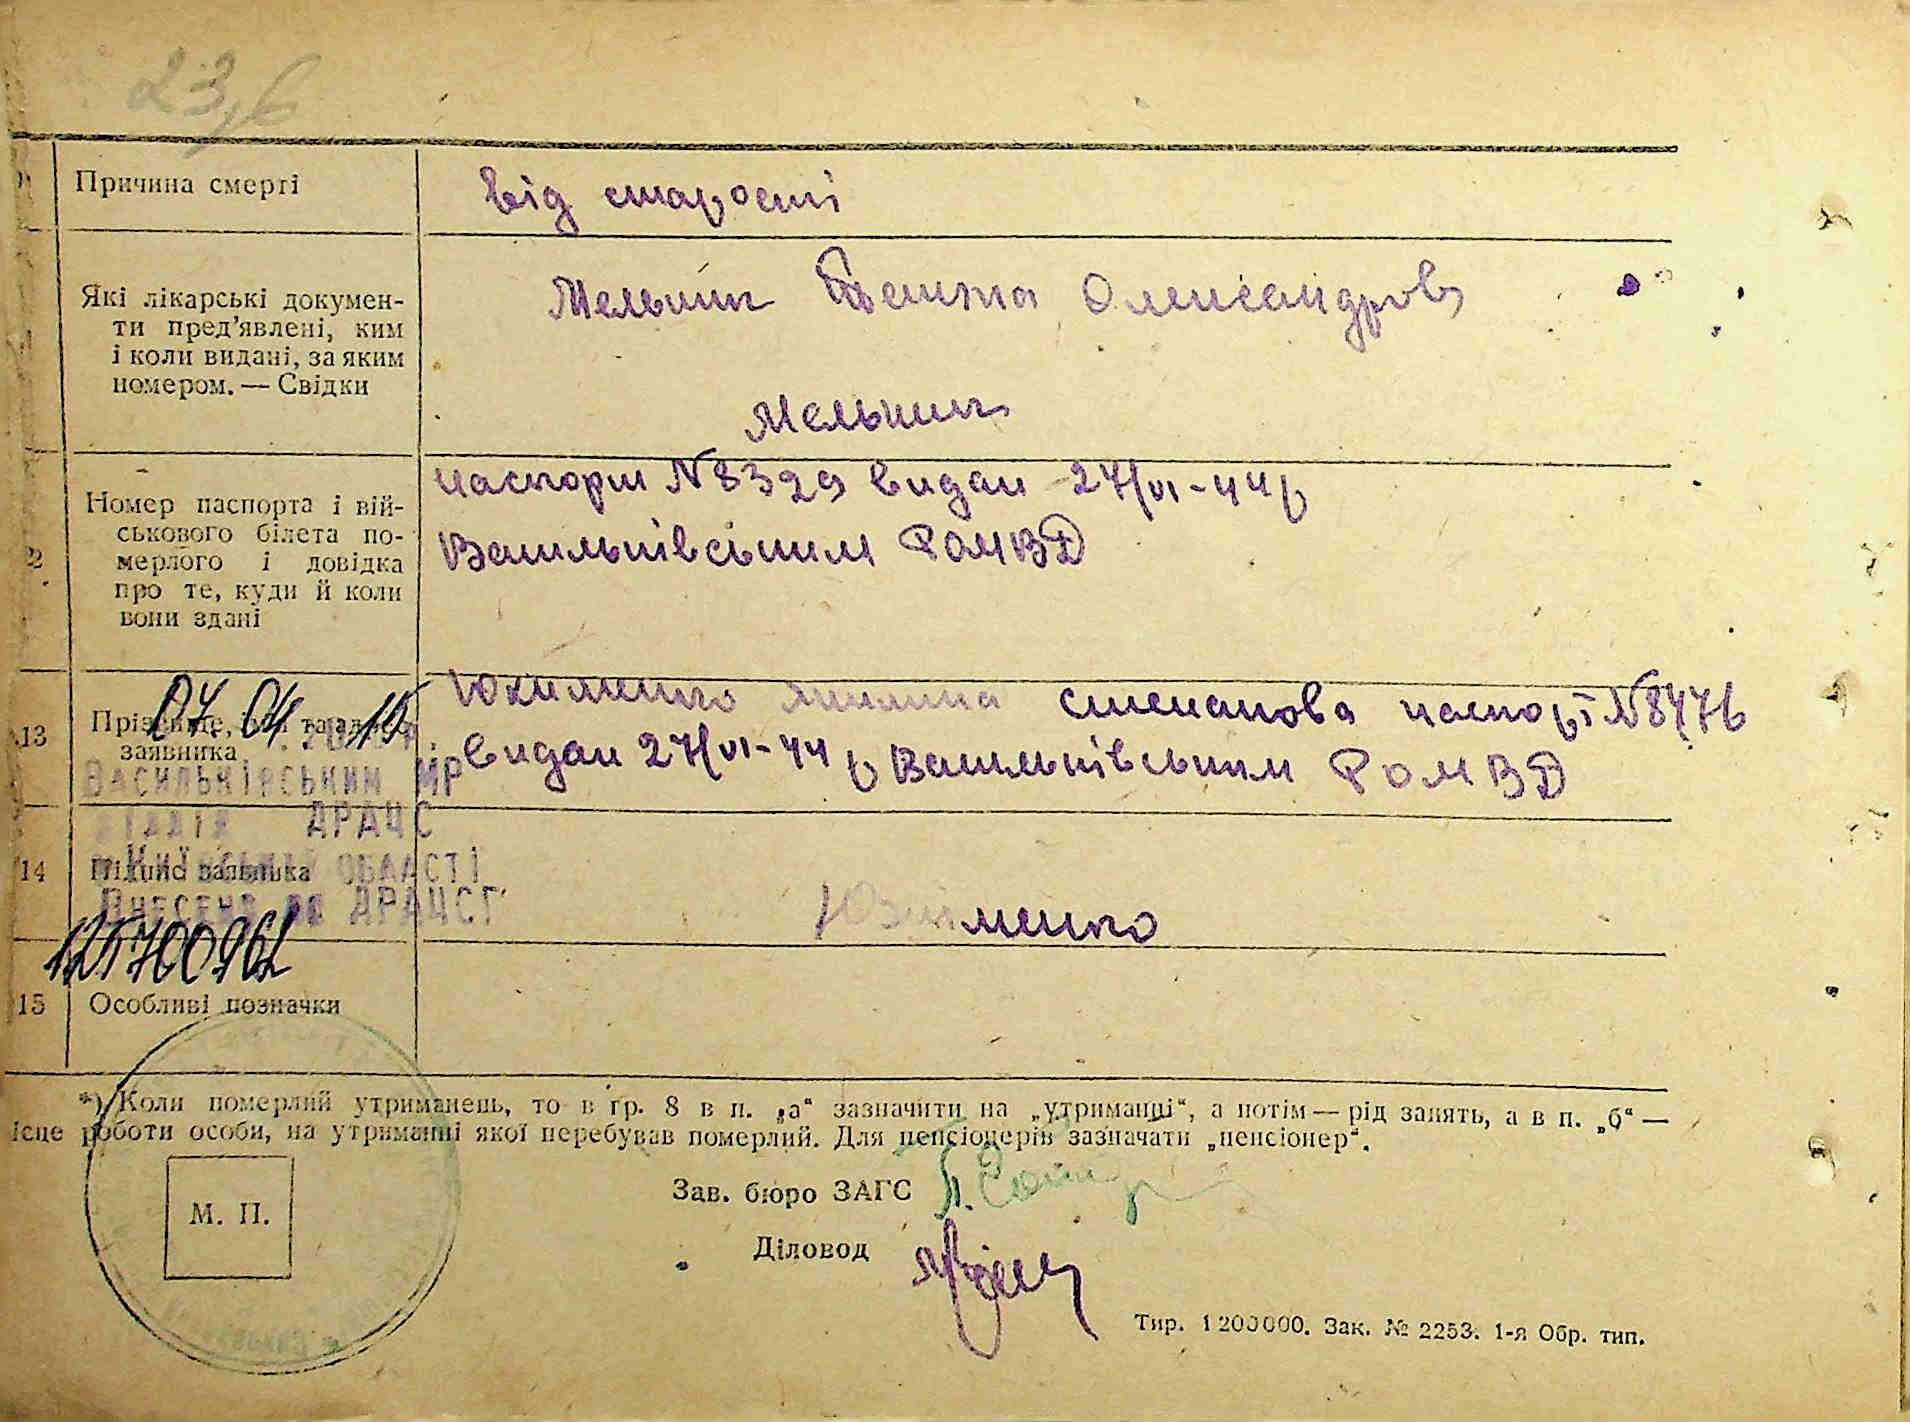 23,б
Причина смерті
від старості
Які лікарські докумен-
ти пред'явлені, ким
і коли видані, за яким
номером. — Свідки
Мельник Олександров
Мельник
Номер паспорта і вій-
ськового білета по-
мерлого і довідка
про те, куди й коли
вони здані
паспорт N 8329 видан 27/VI-44 р
Васильківським РОМВД
13
Прізвище, ім'я та адрес
заявника
07 04 2015 р.
Юхименко степанова паспорт N 8476
видан 27/VI-44 р Васильківським РОМВД
ВАСИЛЬКІВСЬКИМ МР
ВІДДІЛ ДРАЦС
КИЇВСЬКІЙ ОБЛАСТІ
ВНЕСЕНО ДО ДРАЦСГ
14
Підпис заявника
Юхименко
15
Особливі позначки
*) Коли померлий утриманець, то в гр. 8 в п. „а“ зазначити на „утриманні“, а потім — рід занять, а в п. „б“ —
ісце роботи особи, на утриманні якої перебував померлий. Для пенсіонерів зазначати „пенсіонер“.
М. П.
Зав. бюро ЗАГС
Діловод
Тир. 1200000. Зак. № 2253. 1-я Обр. тип.